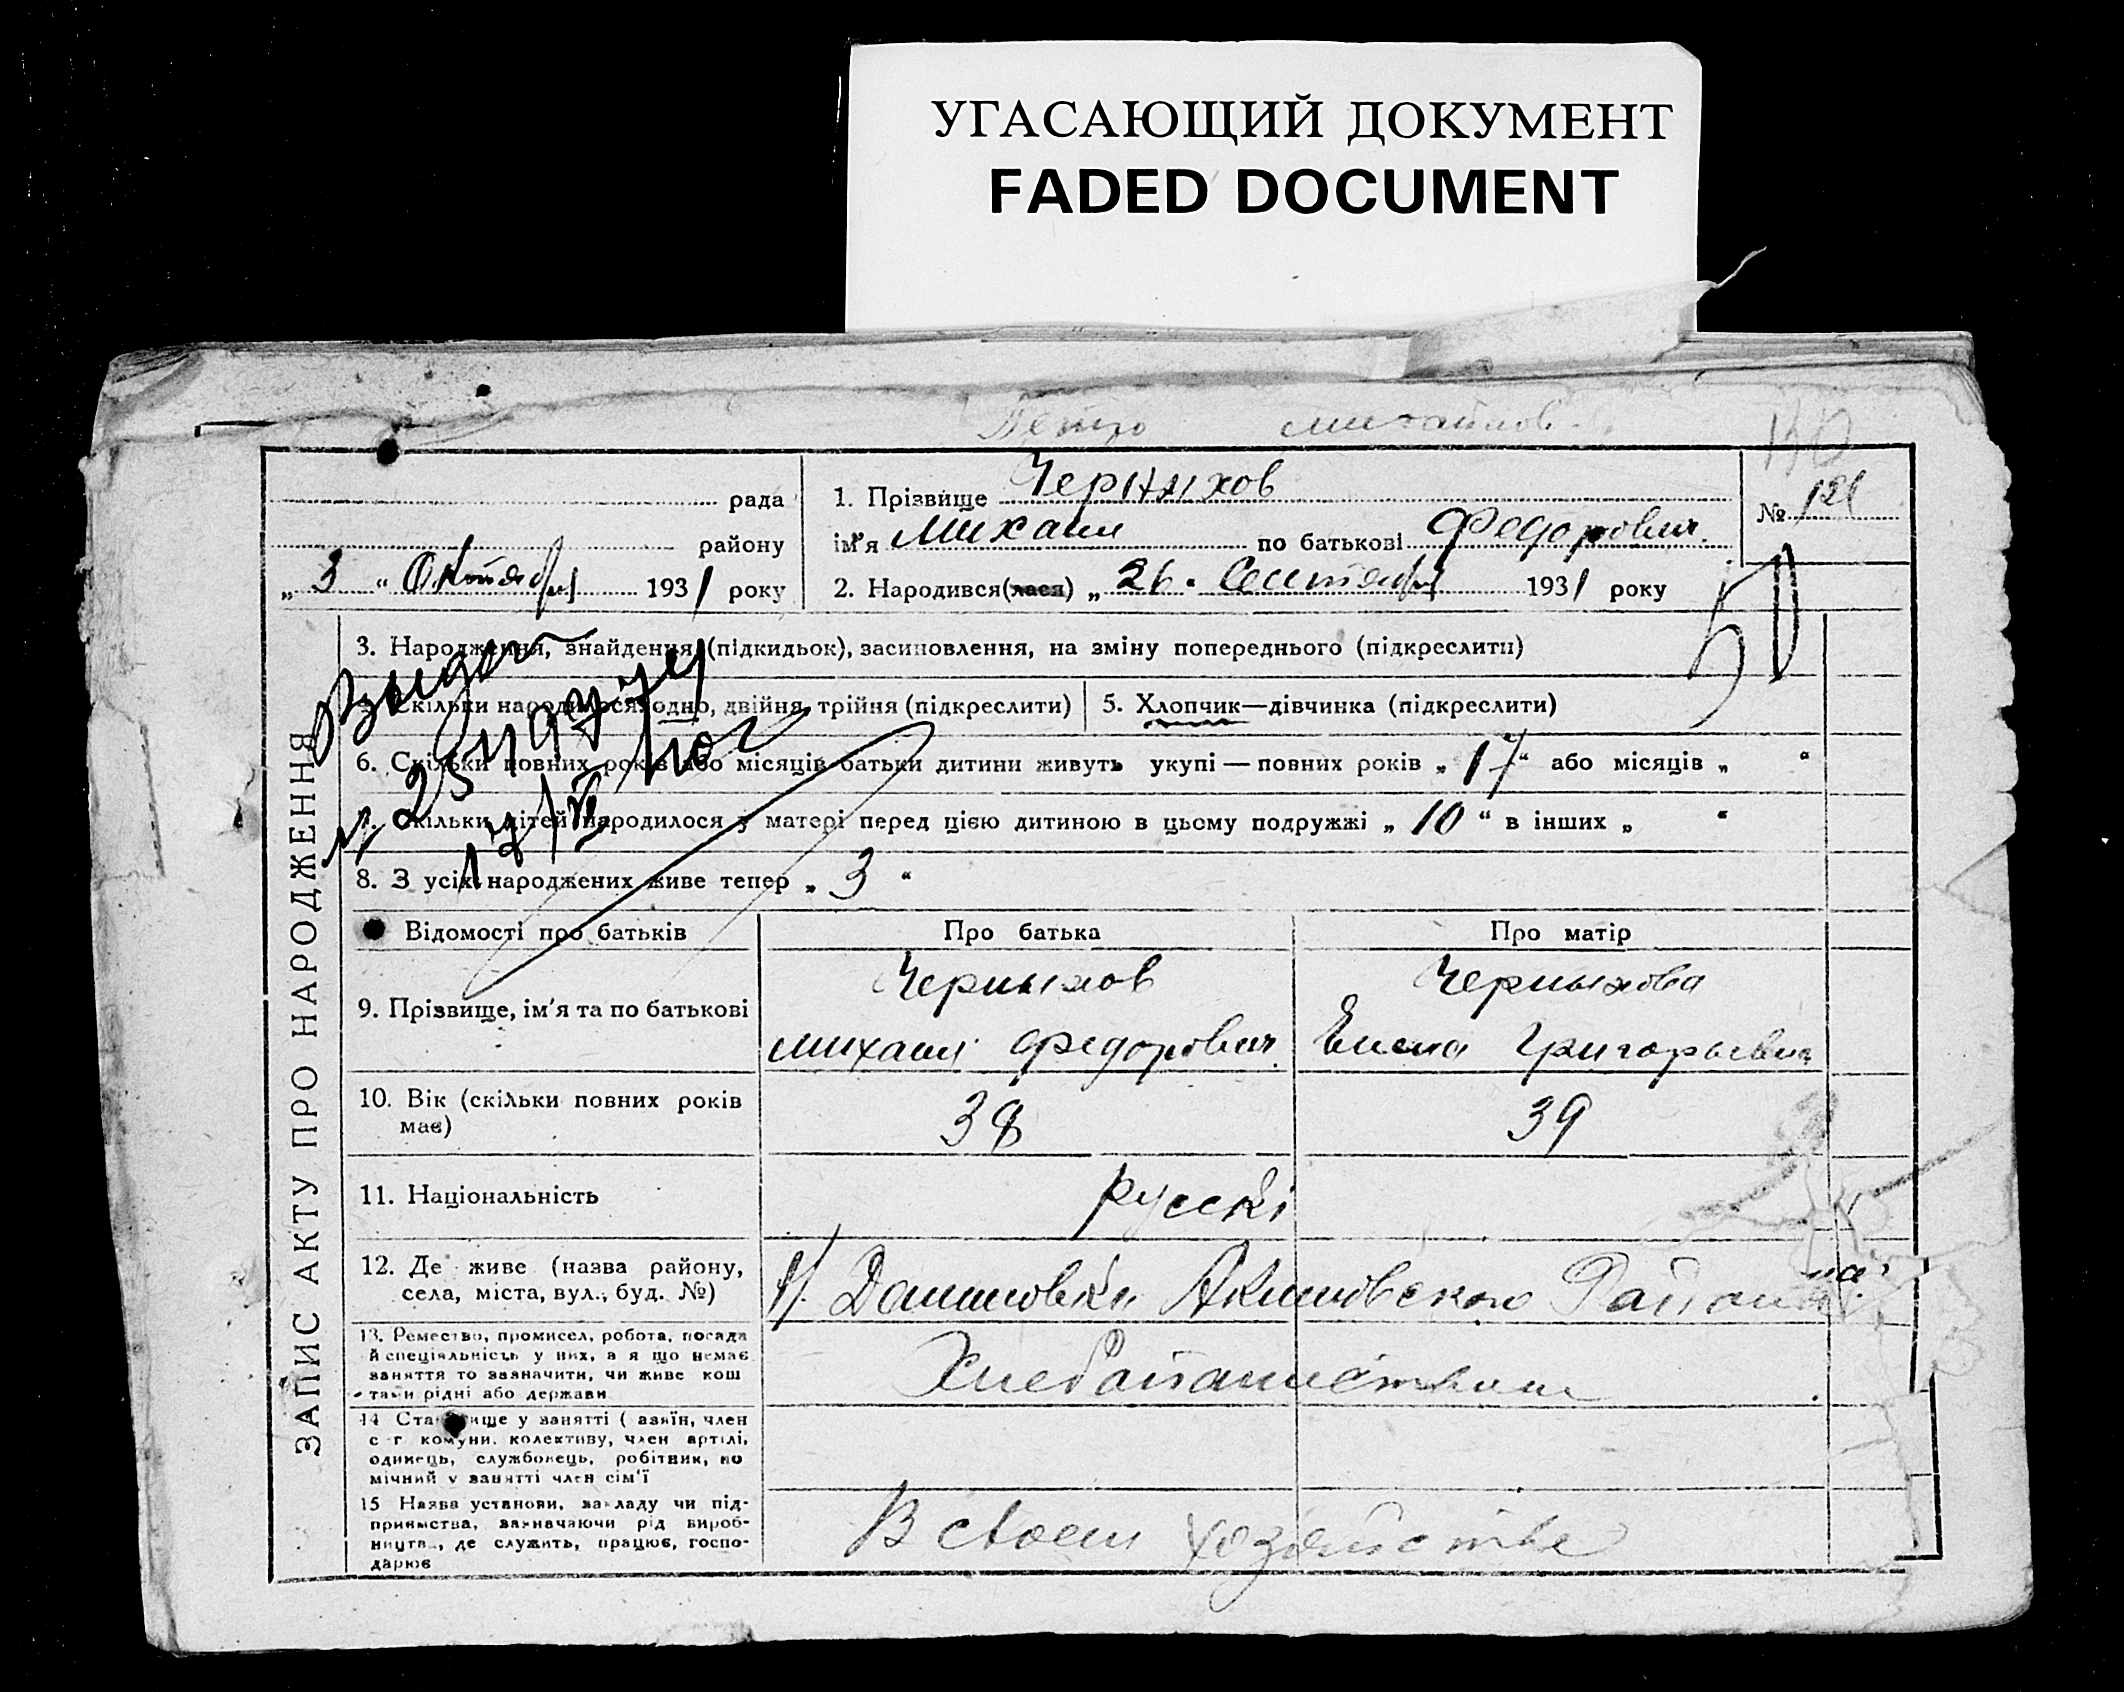 УГАСАЮЩИЙ ДОКУМЕНТ
FADED DOCUMENT
Петро Михайлов.
рада
району
„ 3 “ Октября 1931 року
1. Прізвище Черныхов
ім'я Михаил по батькові Федорович.
2. Народився(лася) „ 26. Сентября 1931 року
№ 121
50
ЗАПИС АКТУ ПРО НАРОДЖЕННЯ
3. Народження, знайдення (підкидьок), засиновлення, на зміну попереднього (підкреслити)
Скільки народилося: одно, двійня, трійня (підкреслити)
5. Хлопчик—дівчинка (підкреслити)
6. Скільки повних років або місяців батьки дитини живуть укупі — повних років „ 17 “ або місяців „ “
Скільки дітей народилося у матері перед цією дитиною в цьому подружжі „ 10 “ в інших „ “
8. З усіх народжених живе тепер „ 3 “
Відомості про батьків
Про батька
Про матір
9. Прізвище, ім'я та по батькові
Черныхов
Михаил Федорович.
Черныхова
Елена Григорьевна
10. Вік (скільки повних років має)
38
39
11. Національність
русскі
12. Де живе (назва району,
села, міста, вул., буд. №)
Даниловки Акимовского Района
13. Ремество, промисел, робота, посада
й спеціяльність у них, а я що немає
заняття то зазначити, чи живе кош
тами рідні або держави
Хлебопашеством
14 Становище у занятті ( азяїн, член
с г комуни. колективу, член артілі,
одинець, службовець, робітник, по
мічний у занятті член сім'ї
15 Назва установи, закладу чи під-
приємства, зазначаючи рід вироб-
ництв., де служить, працює, госпо-
дарює
В своем хозяйстве